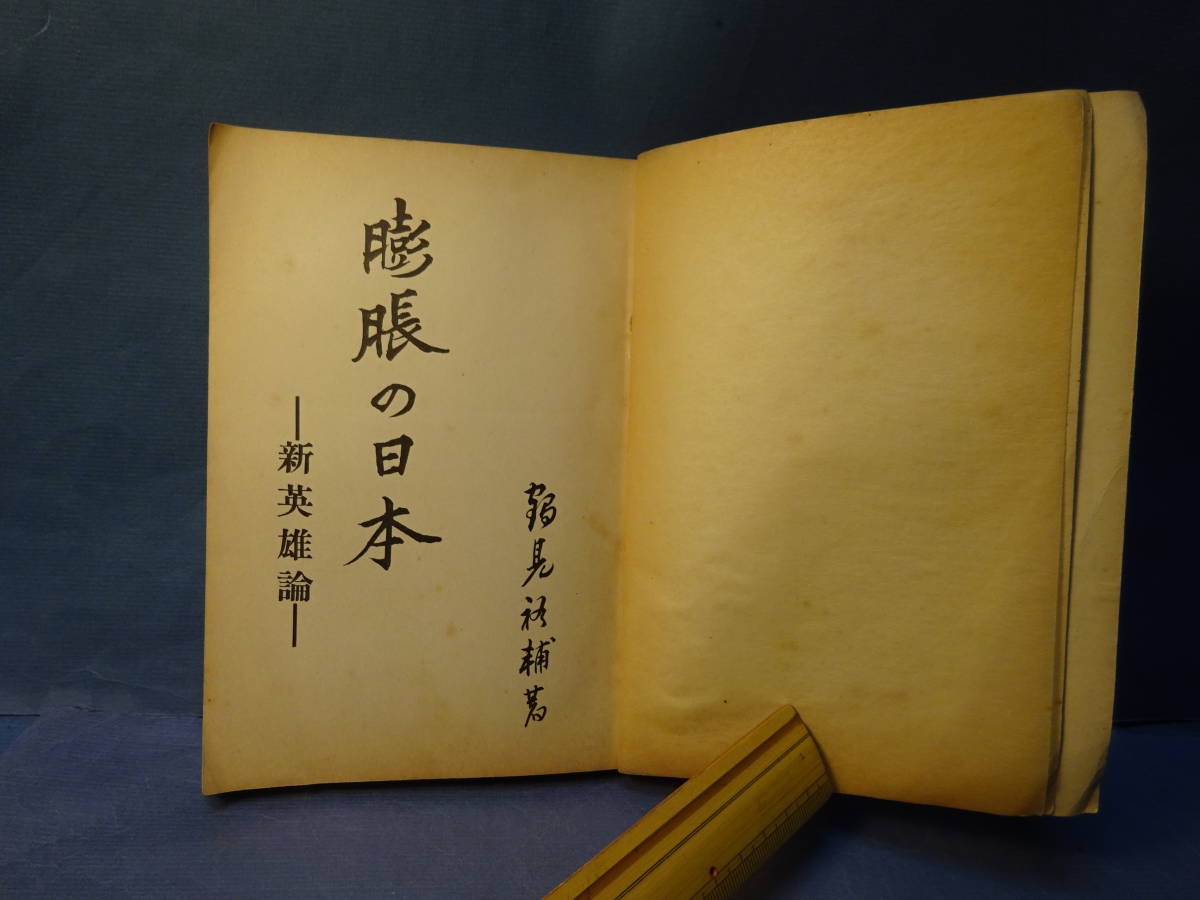 鶴見祐輔著
膨脹の日本
―新英雄論―